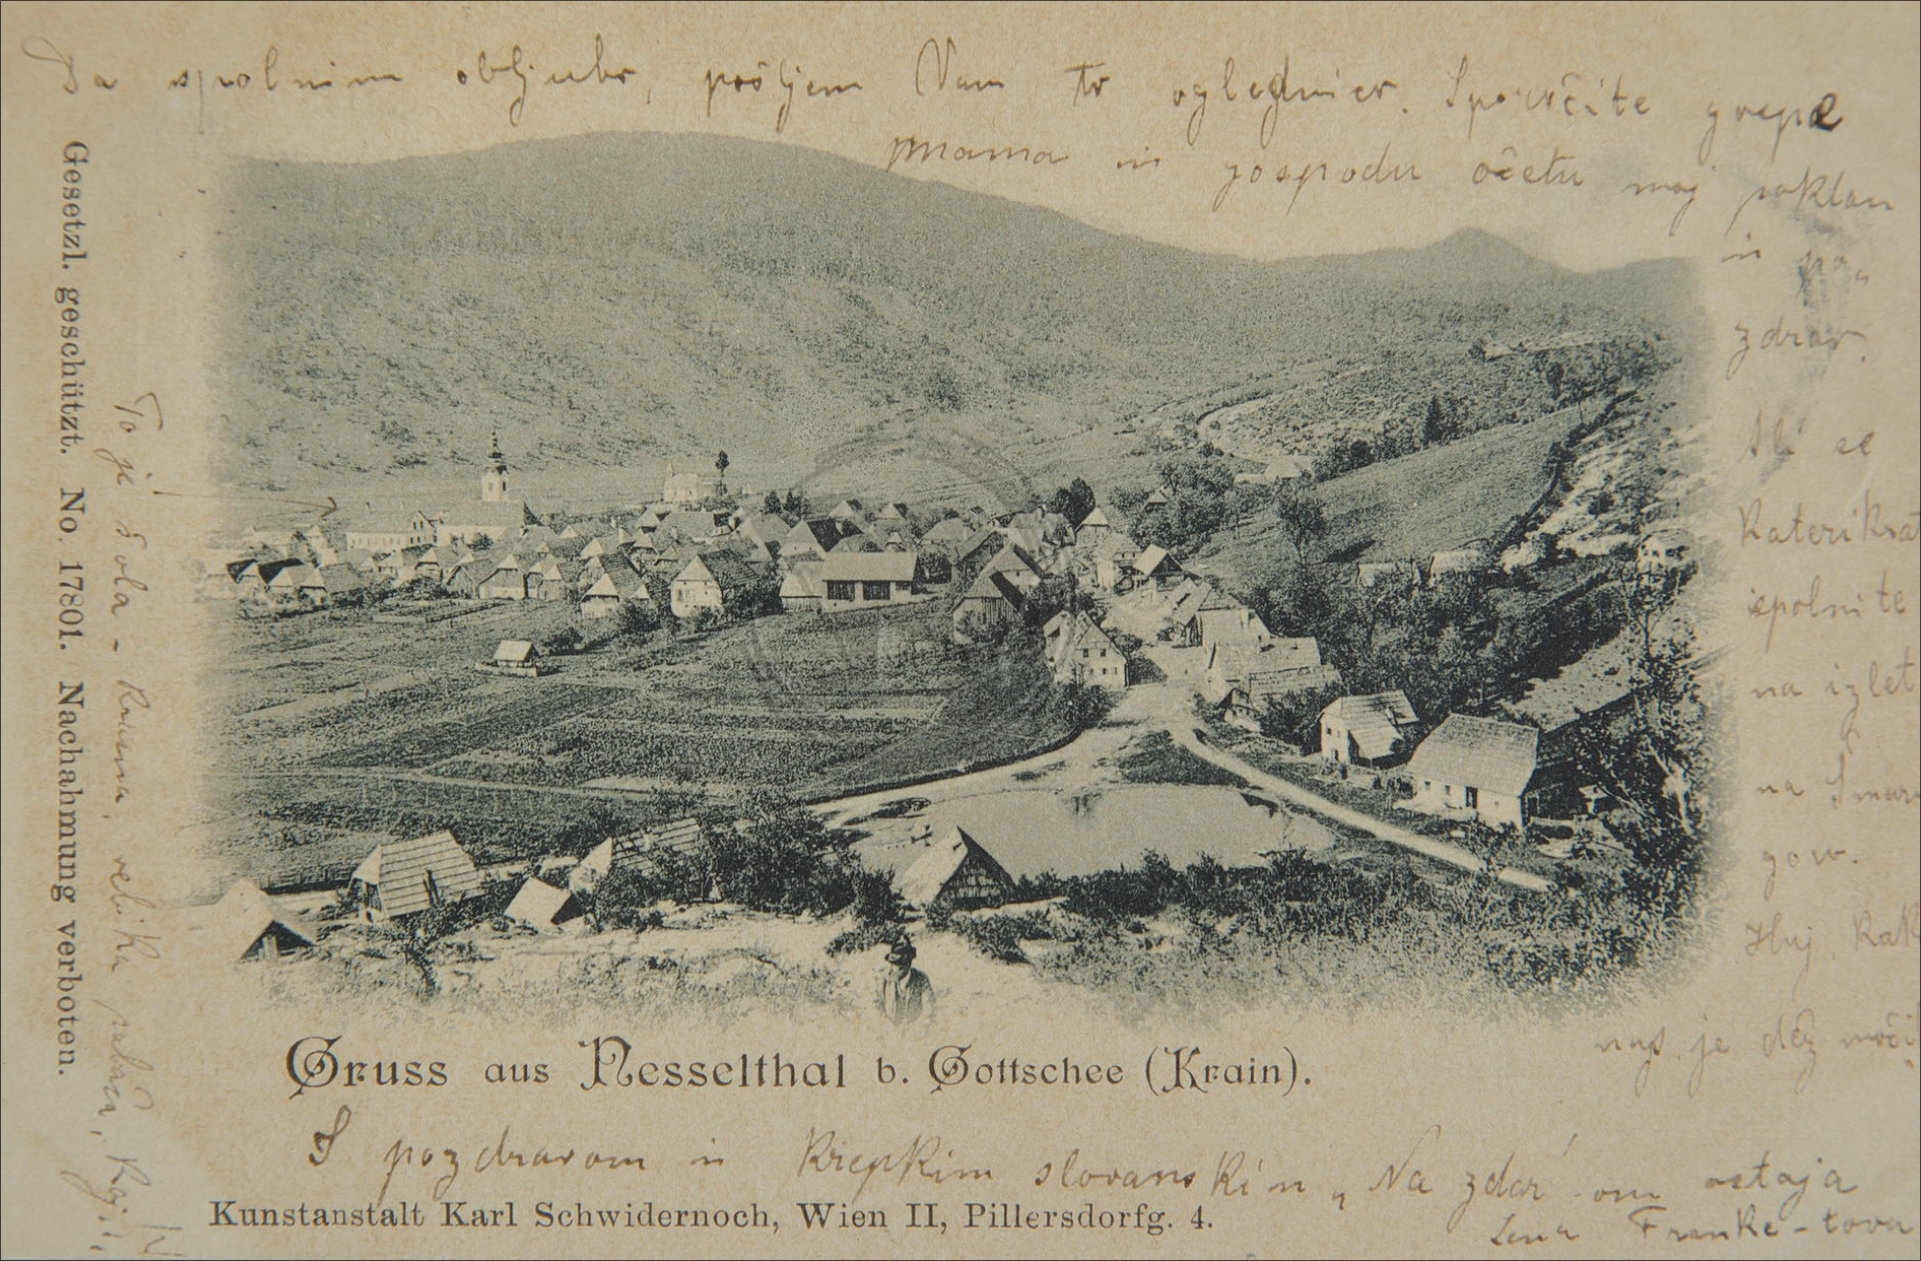 Da spolnim obljubo, pošljem Vam to oglednico. Sporočite gospe
mama in gospodu očetu moj poklon
in po„
zdrav.
Ali se
Katerikrat
spolnite
na izlet
na Šmar
gow.
Huj, kak
nas je dež moči
Gruss aus Nesselthal b. Gottschee (Krain).
S pozdravom in krepkim slovanskim „Na zdar"-om ostaja
Lena Franke-tova
Kunstanstalt Karl Schwidernoch, Wien II, Pillersdorfg. 4.
Gesetzl. geschützt. No. 17801. Nachahmung verboten.
To je šola - velika